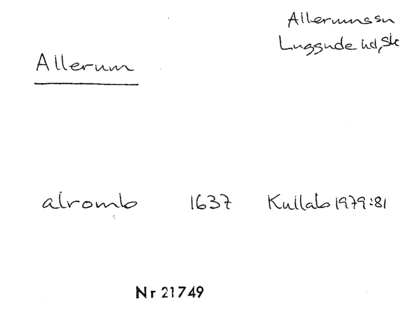 Allerumssn
Luggude hd, Sk
Allerum
alromb 1637 Kullab 1979:81
Nr 21749